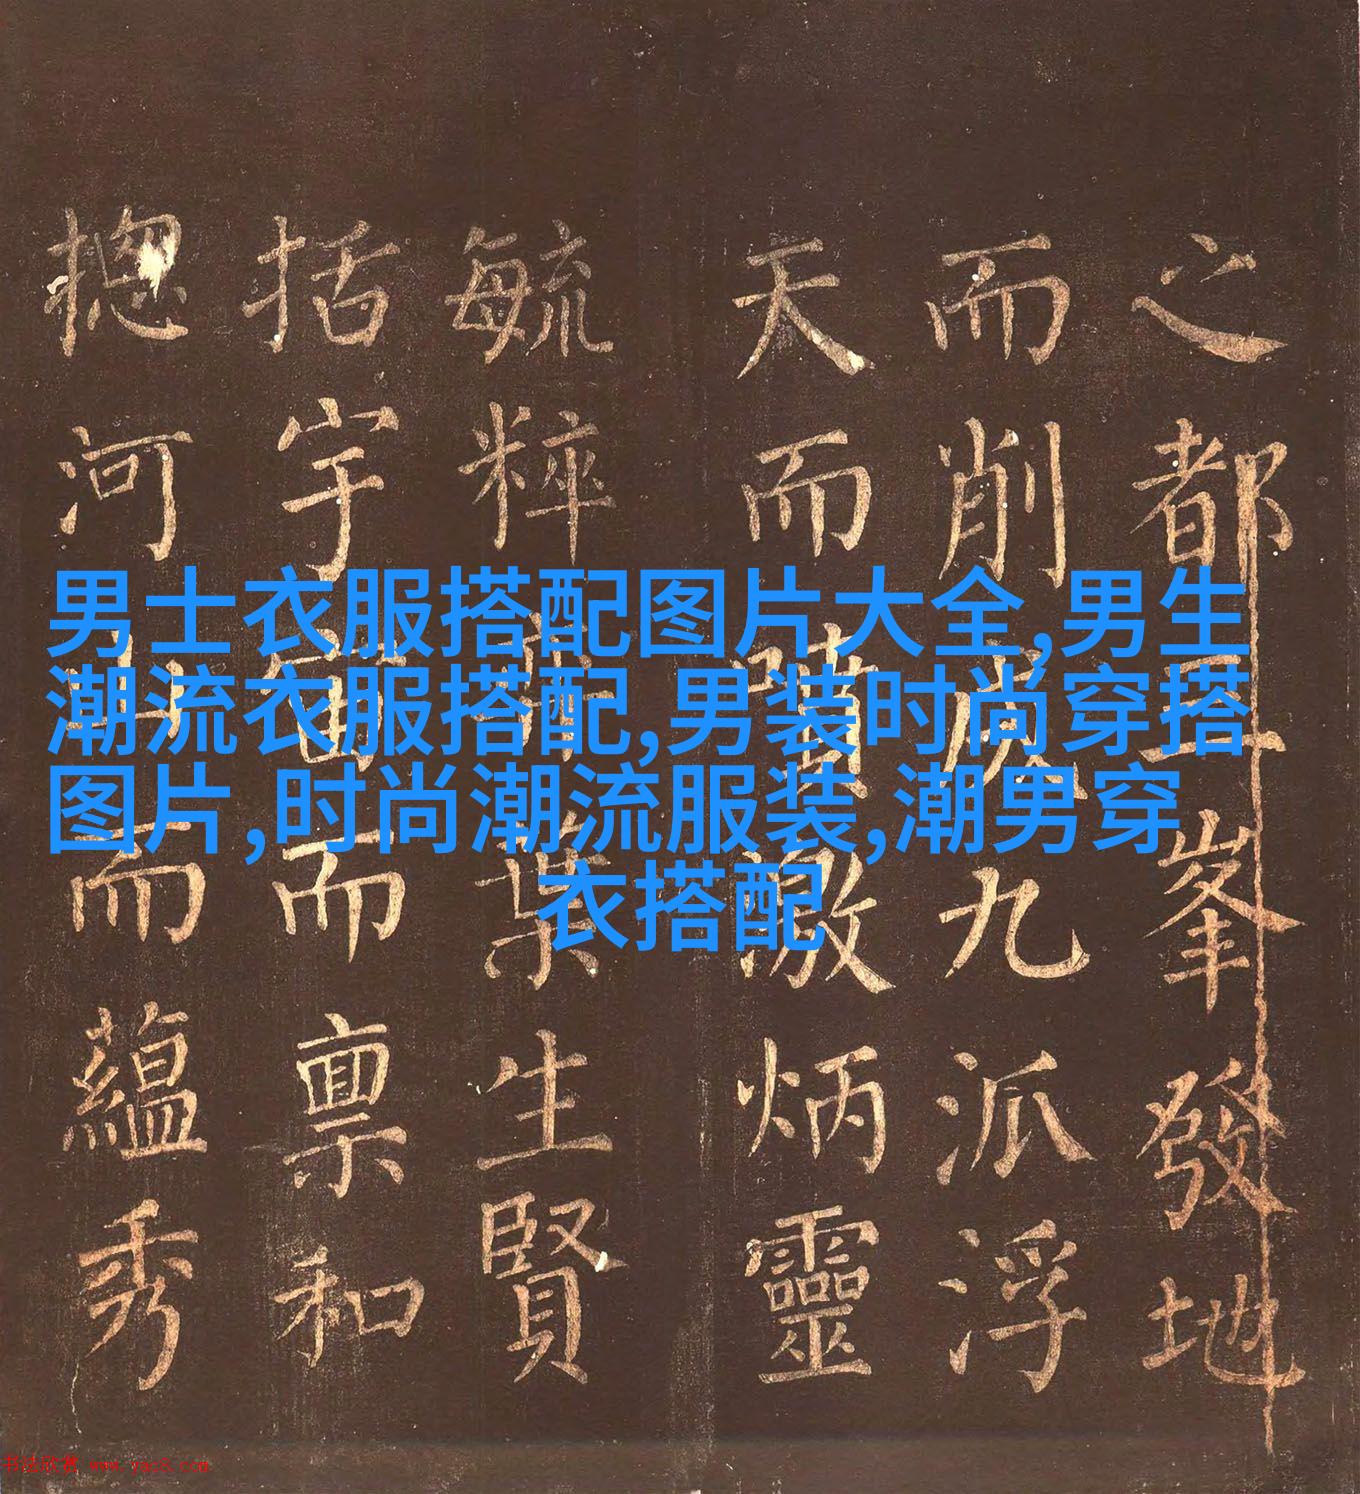 男士衣服搭配图片大全,男生
潮流衣服搭配,男装时尚穿搭
图片,时尚潮流服装,潮男穿
衣搭配
之都三峯發地
而削成九派浮
天而噴激炳靈
毓粹葉生賢
括宇宙而禀和
摠河山而蘊秀
书法欣赏 www.yac8.com